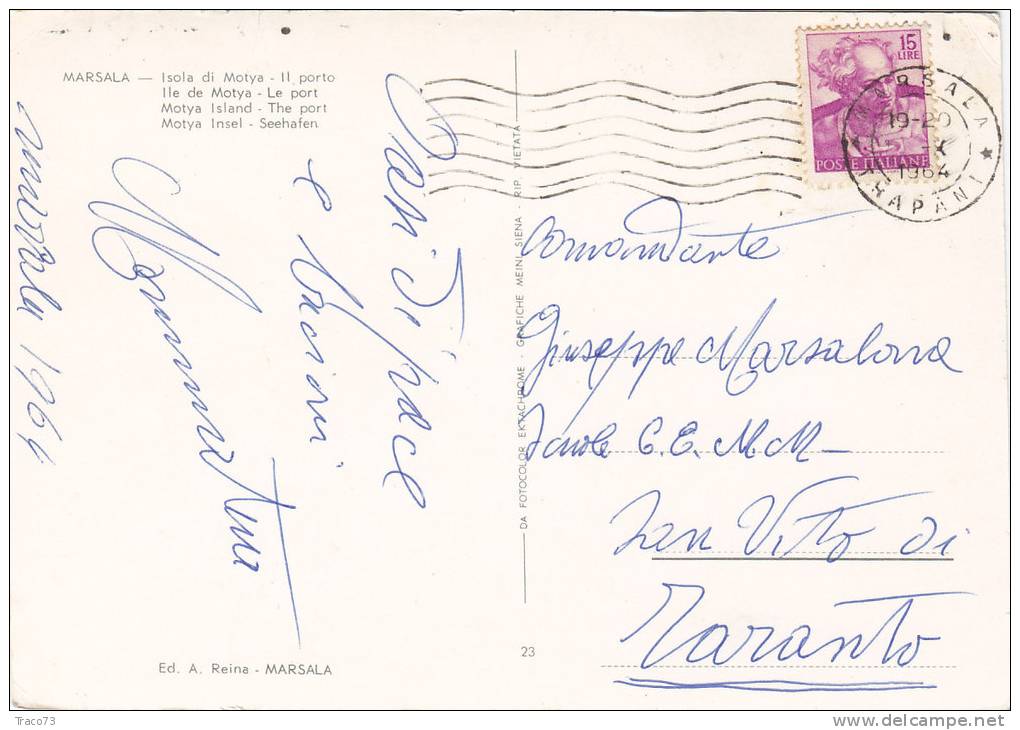 MARSALA — Isola di Motya - Il porto
Ile de Motya - Le port
Motya Island - The port
Motya Insel - Seehafen
Marsala 1964
e bacini
Mamma tua
Ed. A. Reina - MARSALA
DA FOTOCOLOR EKTACHROME - GRAFICHE MEINI SIENA - RIP. VIETATA
23
15
LIRE
POSTE ITALIANE
MARSALA
19-20
1964
TRAPANI
Comandante
Giuseppe Marsalona
Scuole C.E.M.M.
San Vito di
Taranto
Traco73
www.delcampe.net